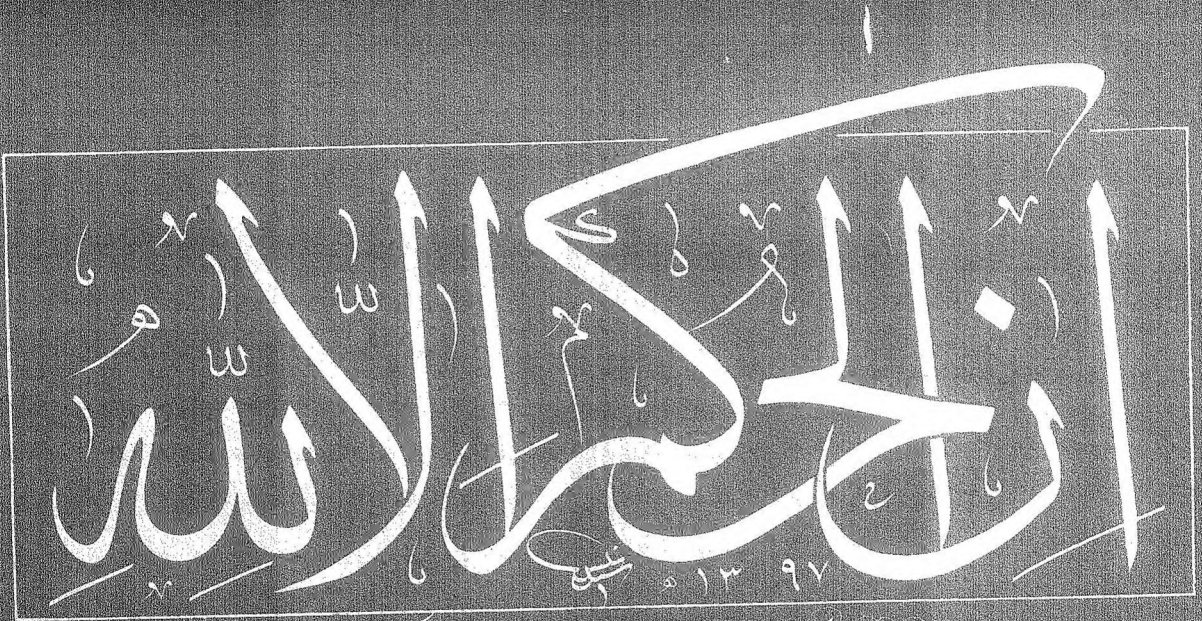 اِنِ الحُكمُ اِلّا لِلّٰهِ
١٣٩٧ ه